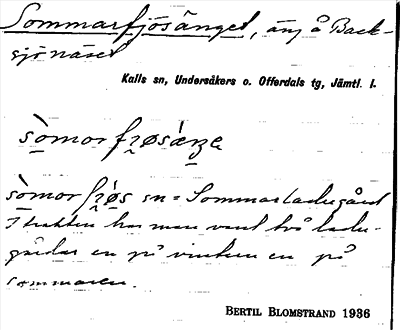 Sommarfjösänget, änj å Back-
sjönäset
Kalls sn, Undersåkers o. Offerdals tg, Jämtl. l.
sòmorfɽøsæŋe
sòmorfɽøs sn = Sommarladugård
I trakten har man vant två ladu-
gårdar en på vintern en på
sommaren.
BERTIL BLOMSTRAND 1936